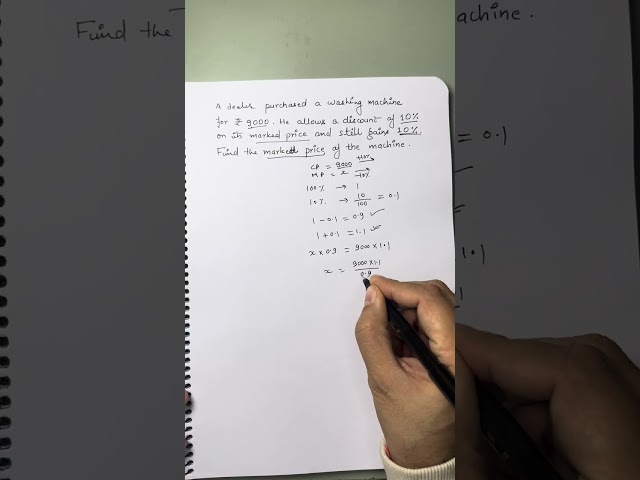 Find the
A dealer purchased a washing machine
for ₹ 9000. He allows a discount of 10%
on its marked price and still gains 10%.
Find the marked price of the machine.
CP = 9000 +10%
MP = x -10%
100% → 1
10% → 10/100 = 0.1
1 - 0.1 = 0.9 ✓
1 + 0.1 = 1.1 ✓
x × 0.9 = 9000 × 1.1
x = 9000 × 1.1 / 0.9
achine.
= 0.1